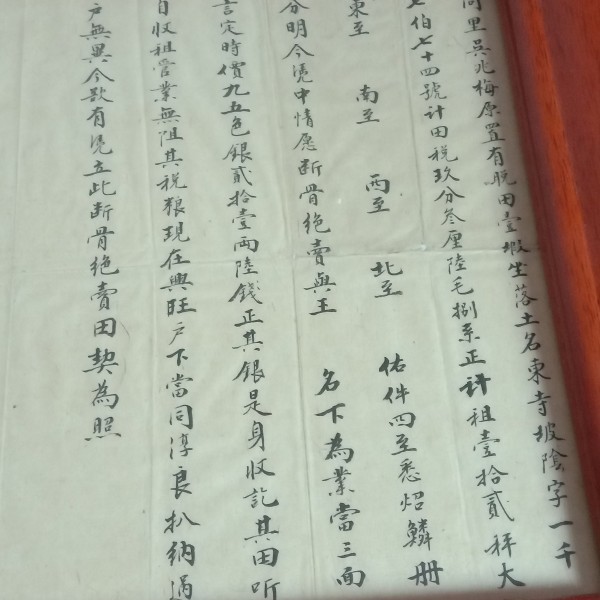 同里吳兆梅原置有稅田壹坵坐落土名東寺坡陰字一千
七伯七十四號計田稅玖分叁厘陸毛捌系正計租壹拾貳秤大
東至 南至 西至 北至 佑件四至悉炤鱗册
分明今凴中情愿断骨絶賣與王 名下為業當三面
言定時價九五色銀貳拾壹兩陸錢正其銀是身收訖其田听
自收租管業無阻其税粮現在興旺户下當同淳良扒納過
户無異今欲有凴立此断骨絶賣田契為照